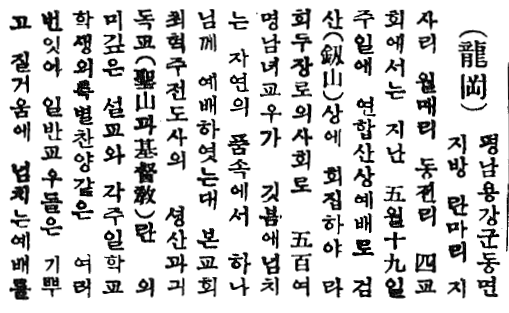 (龍岡)
평남용강군동면
지방 란마리 지
사리 월매리 동전리 四교
회에서는 지난 五월十九일
주일에 연합산상예배로 검
산(釰山)상에 회집하야 마
회두장로의사회로 五百여
명남녀교우가 깃븜에넘치
는 자연의 품속에서 하나
님께 예배하엿는대 본교회
최혁주전도사의 셩산과긔
독교(聖山과基督敎)란 의
미깊은 설교와 각주일학교
학생의특별찬양같은 여러
번잇어 일반교우들은 기뿌
고 질거움에 넘치는예배를